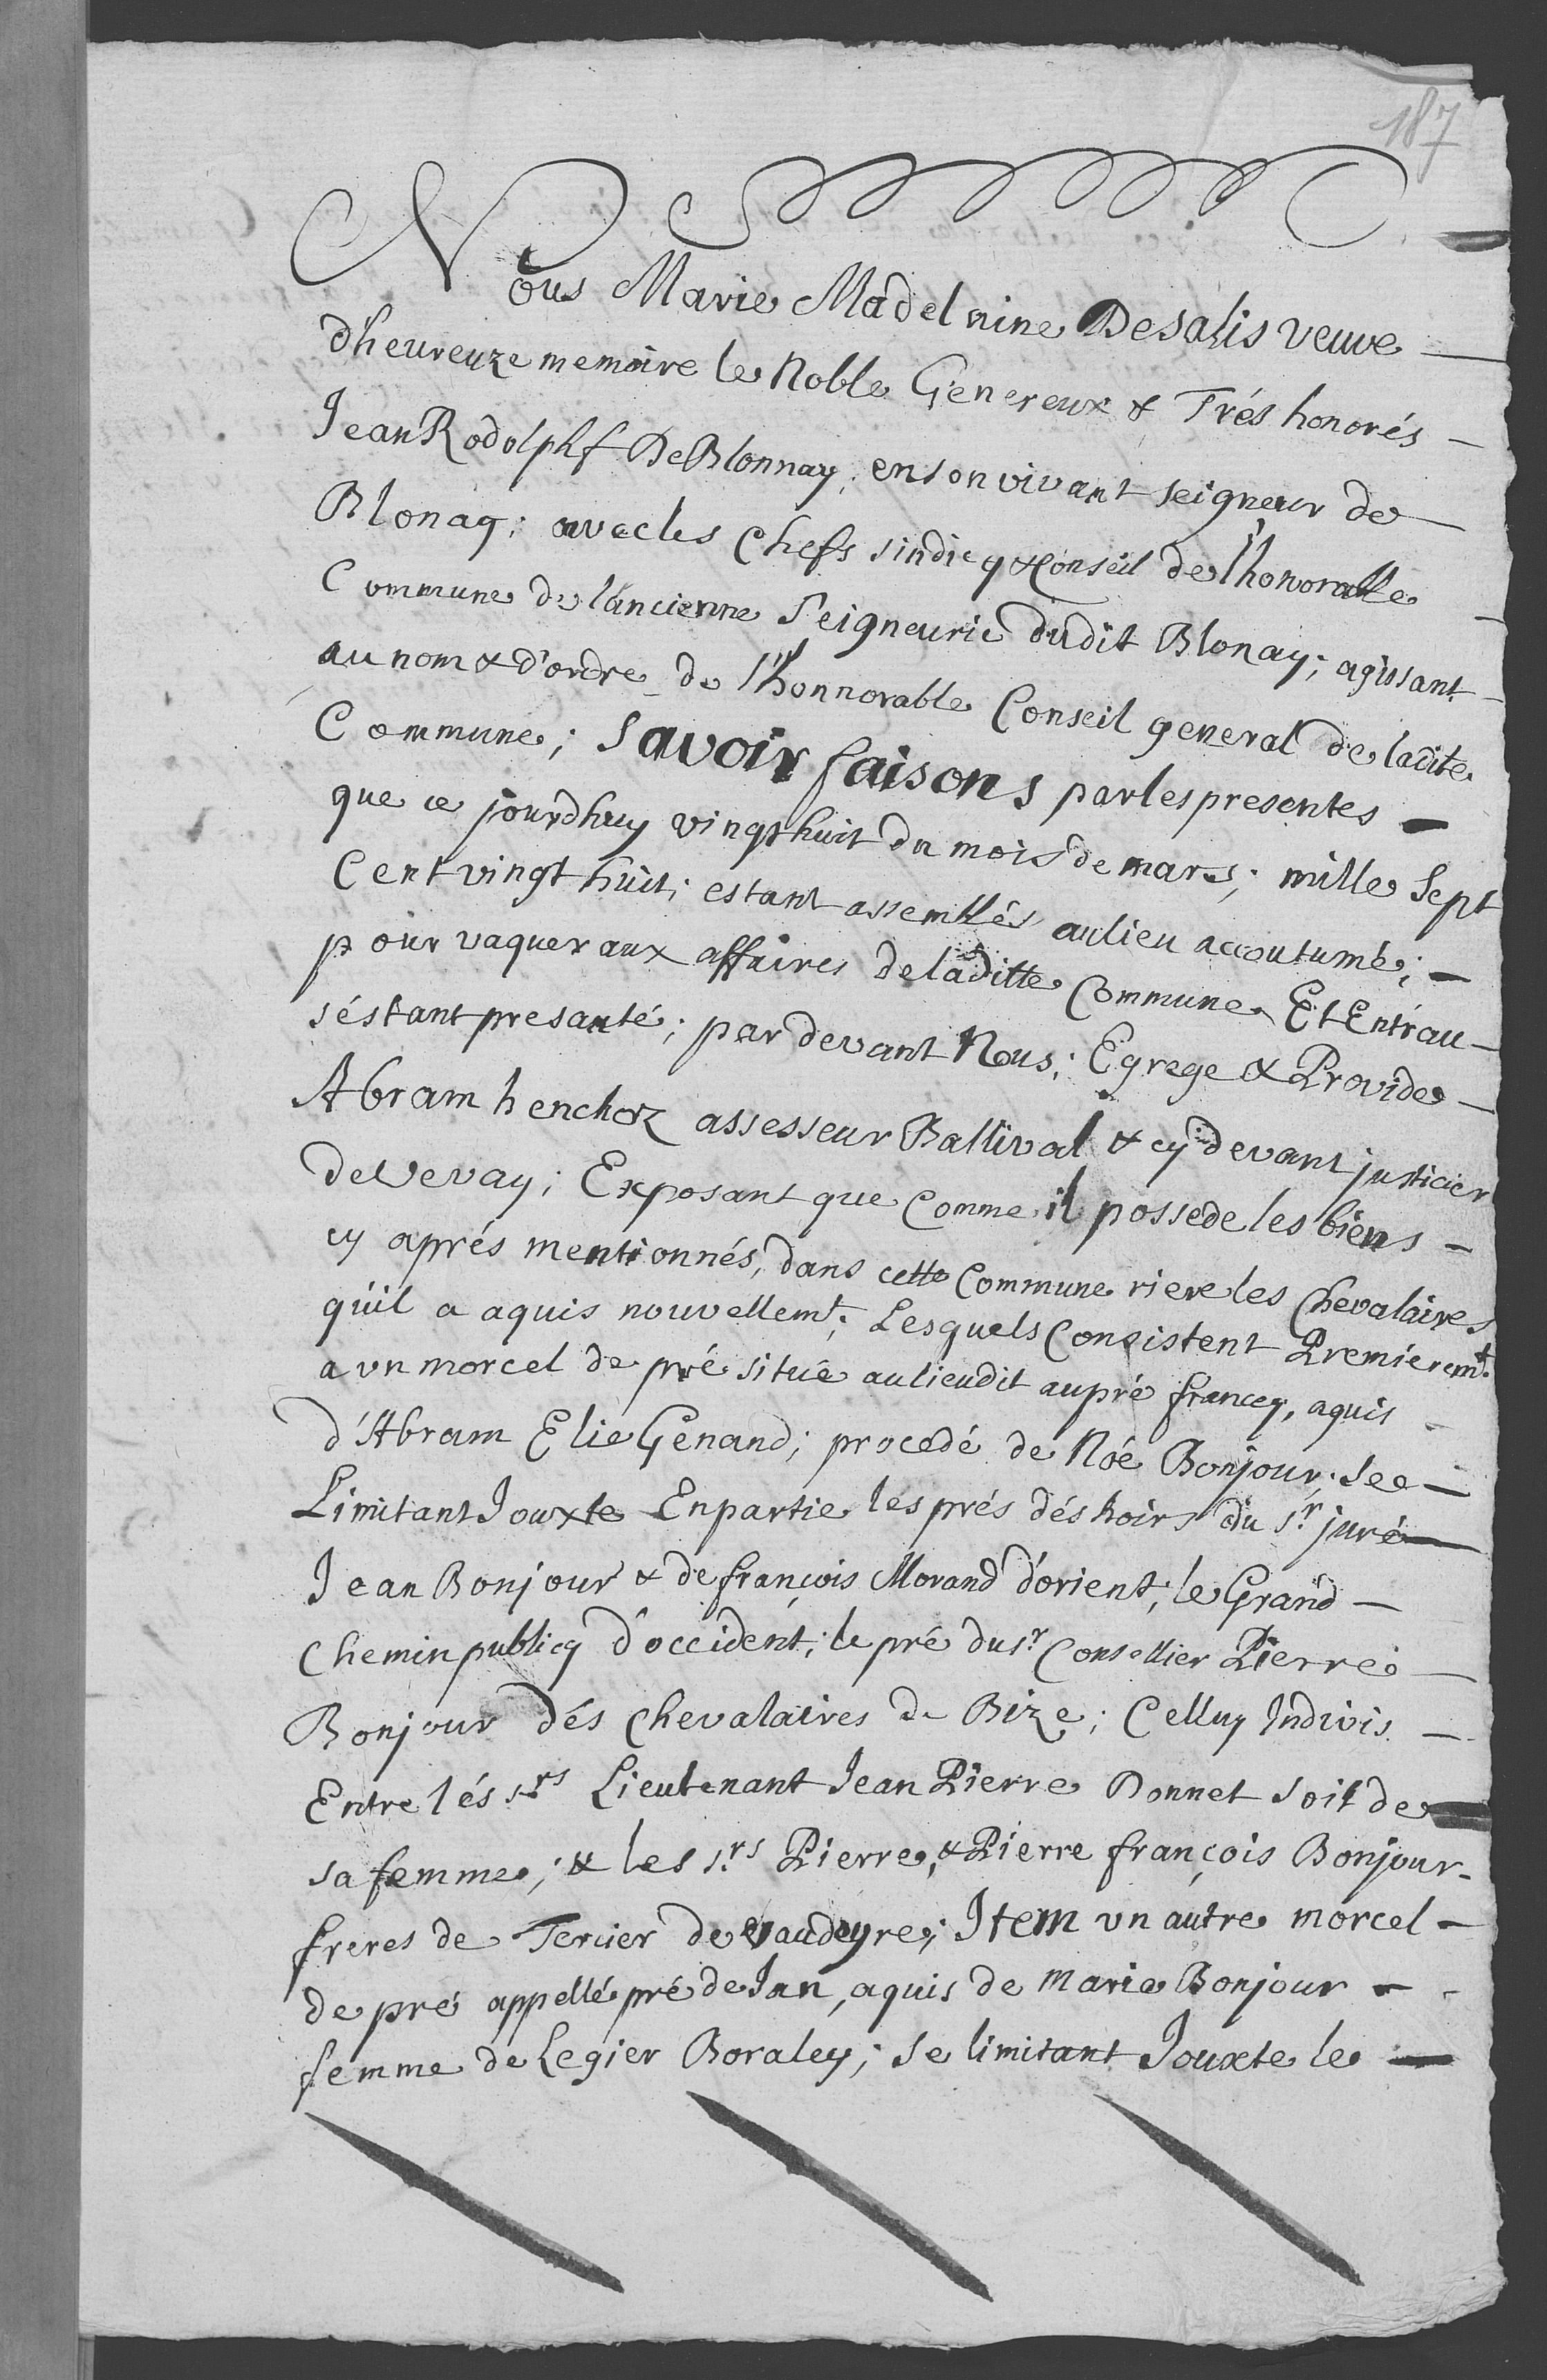 187
Nous Marie Madelaine Desalis veuve
d'heureuze memoire le Noble Genereux & Trés honorés
Jean Rodolphf De Blonnay; en son vivant seigneur de
Blonay; avec les Chefs sindicq & Conseil de l'honorable
Commune de l'ancienne Seigneurie dudit Blonay; agissant
au nom & d'ordre de l'honnorable Conseil general de ladite
Commune; Savoir faisons par les presentes
que ce jourdhuy vingthuit du mois de mars; mille Sept
Cent vingt huit; estant assemblés au lieu accoutumé;
pour vaquer aux affaires de laditte Commune Et Entrau
s'éstant presanté; par devant Nous; Egrege & Provide
Abram henchoz assesseur Ballival & cy devant justicier
de Vevay; Exposant que Comme il possede les biens
cy aprés mentionnés, dans cette Commune riere les Chevalaires
qu'il a aquis nouvellemt; Lesquels Consistent Premieremt.
a un morcel de pré situé au lieudit au pré francey, aquis
d'Abram Elie Genand; procedé de Noé Bonjour; See
Limitant Jouxte En partie les prés dés hoirs du sr. juré
Jean Bonjour & de françois Morand d'orient; le Grand
Chemin publicq d'occident; le pré du sr. Consellier Pierre
Bonjour dés Chevalaires de Bize; Celluy Indivis
Entre lés srs Lieutenant Jean Pierre Bonnet soit de
sa femme; & les srs. Pierre, & Pierre françois Bonjour
freres de Tercier de Vaudeyre; Item un autre morcel
de pré appellé pré de Jan, aquis de Marie Bonjour
femme de Legier Boraley; Se limitant Jouxte le